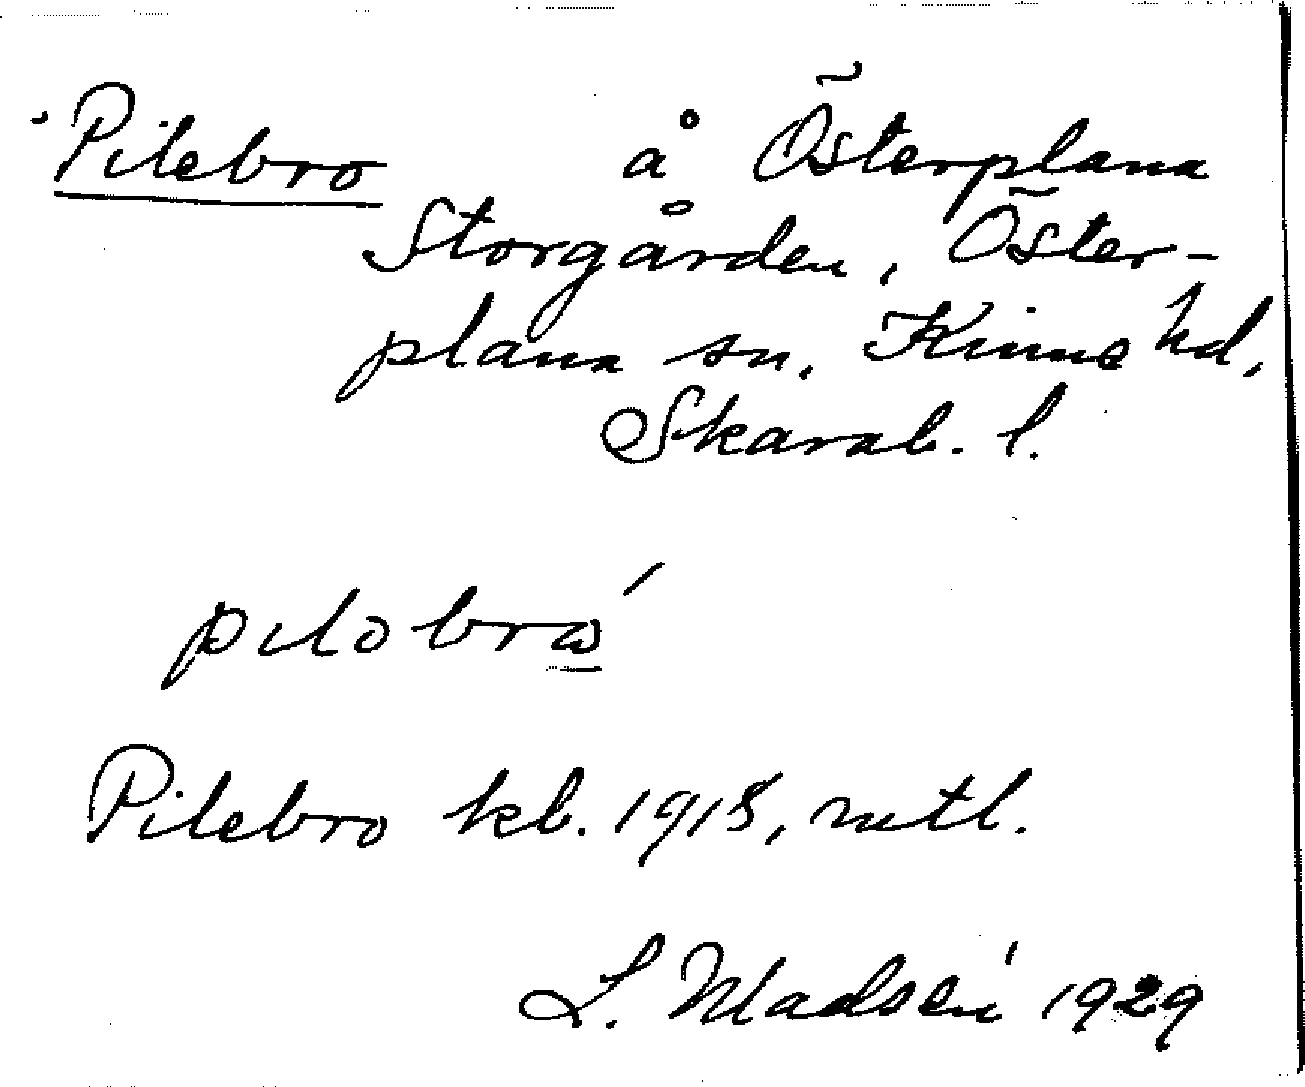 Pilebro å Österplana
Storgården, Öster-
plana sn, Kinne hd,
Skarab. l.
pilobrώ
Pilebro kb. 1918, mtl.
L. Madsén 1929